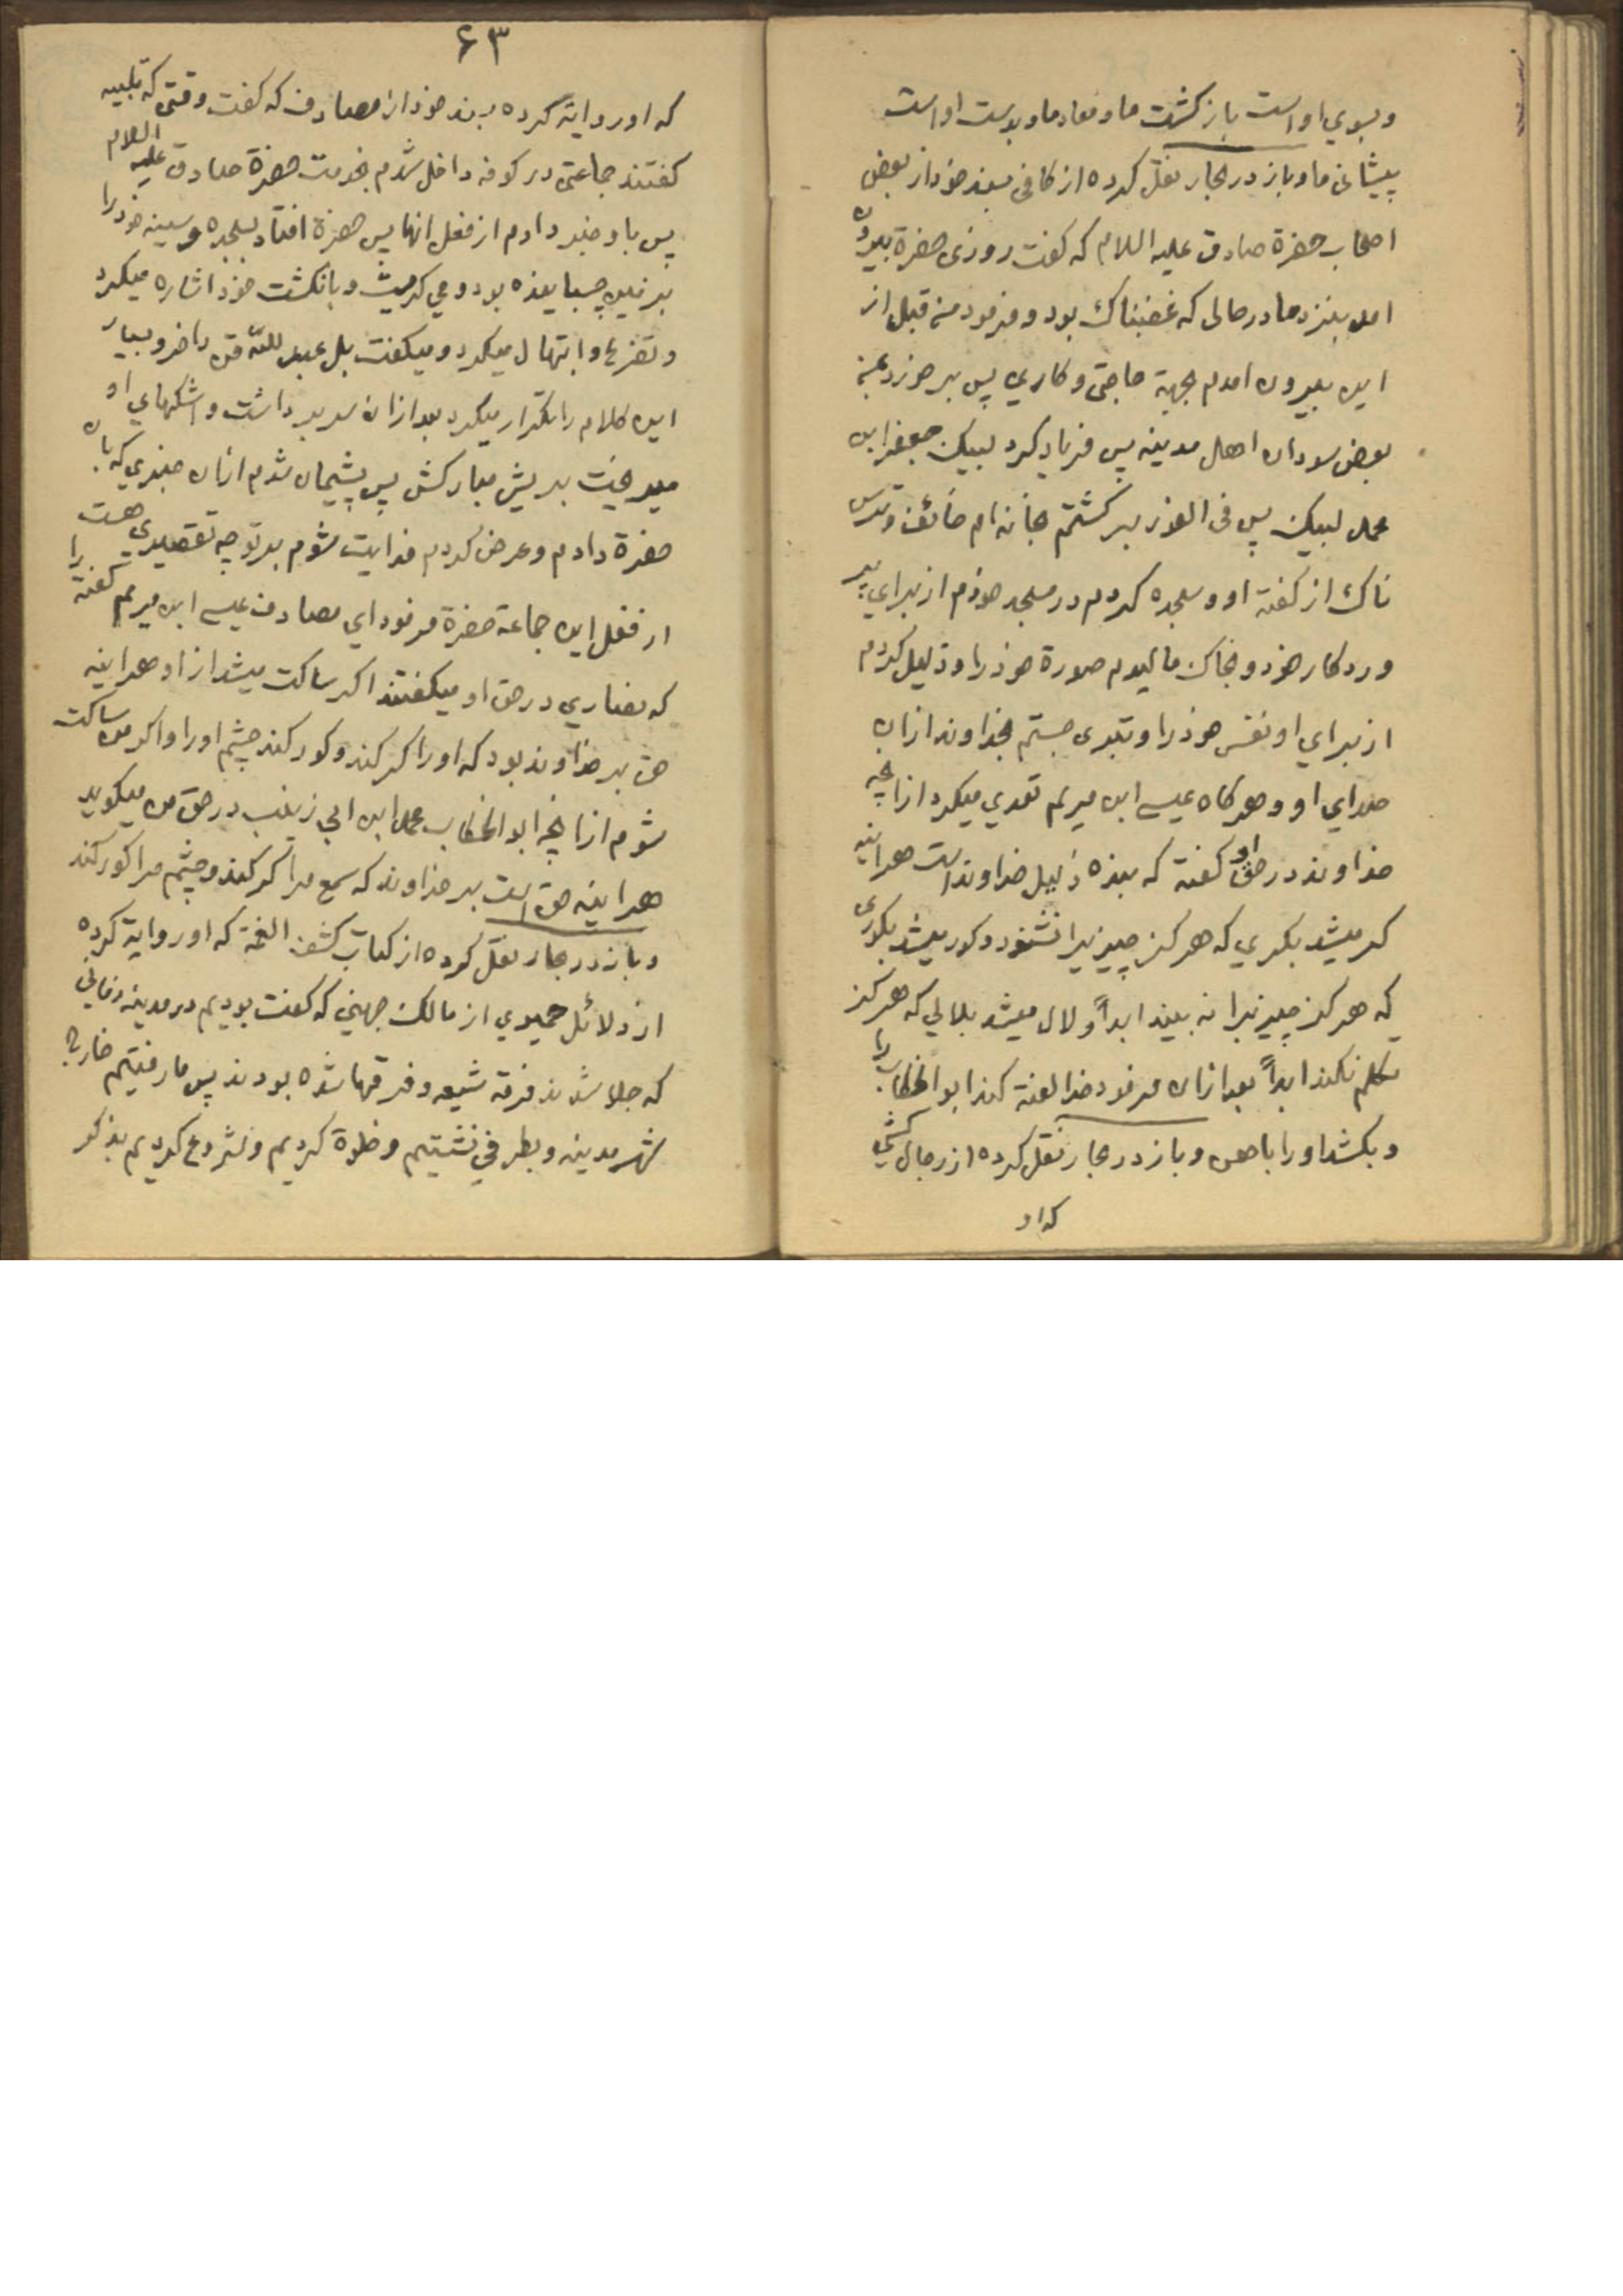 و بسوي اوست بازكشت ما و معاد ما و بدست اوست
پیشانی ما و باز در بحار نقل كرده از كافی بسند خود از بعض
اصحاب حضرة صادق علیه السلام كه كفت روزی حضرة بیرون
امد بنزد ما در حالی كه غضبناك بود و فرمود من قبل از
این بیرون امدم بجهة حاجتی و كاري پس برخورد بمن
بعض سودان اهل مدینه پس فریاد كرد لبیك جعفر ابن
محمد لبیك پس فی الفور بركشتم بخانه ام خائف و ترس
ناك از كفته او و سجده كردم در مسجد خودم از براي پر
وردكار خود و بخاك مالیدم صورة خود را و ذلیل كردم
از براي او نفس خود را و تبری جستم بخداوند از ان
صداي او و هركاه عیسی ابن مریم تعدي میكرد از انچه
خداوند در حق او كفته كه بنده ذلیل خداوند است هراینه
كر میشد بكري كه هركز چیزیرا نشنود و كور میشد بكوری
كه هركز چیزیرا نه بیند ابداً و لال میشد بلالي كه هركز
تكلم نكند ابداً بعد از ان فرمود خدا لعنة كند ابو الخطاب را
و بكشد او را باهن و باز در بحار نقل كرده از رجال كشي
كه او
۶۳
كه او روایة كرده بسند خود از مصادف كه كفت وقتی كه تلبیه
كفتند جماعتی در كوفه داخل شدم بخدمت حضرة صادق علیه السلام
پس باو خبر دادم از فعل انها پس حضرة افتاد بسجده و سینه خود را
بر زمین چسبانیده بود و می كریست و بانكشت خود اشاره میكرد
و تضرع و ابتهال میكرد و میكفت بل عبد لله قن داخر و بسیار
این كلام را تكرار میكرد بعد از ان سر برداشت و اشكهاي او
میریخت بریش مباركش پس پشیمان شدم از ان خبري كه بان
حضرة دادم و عرض كردم فدایت شوم بر تو چه تقصیری هست
از فعل این جماعة حضرة فرمود اي مصادف عیسی ابن مریم كفته را
كه نصاري در حق او میكفتند اكر ساكت میشد از او هراینه
حق بر خداوند بود كه او را كر كند و كور كند چشم او را و اكر من ساكت
شوم از انچه ابو الخطاب محمد ابن ابي زینب در حق من میكوید
هراینه حق است بر خداوند كه سمع مرا كر كند و چشم مرا كور كند
و باز در بحار نقل كرده از كتاب كشف الغمة كه او روایة كرده
از دلائل حمیري از مالك جهني كه كفت بودیم در مدینه زماني
كه جلا شدند فرقه شیعه و فرقها شده بودند پس ما رفتیم خارج
شهر مدینه و بطرفي نشستیم و خلوة كردیم و شروع كردیم بذكر